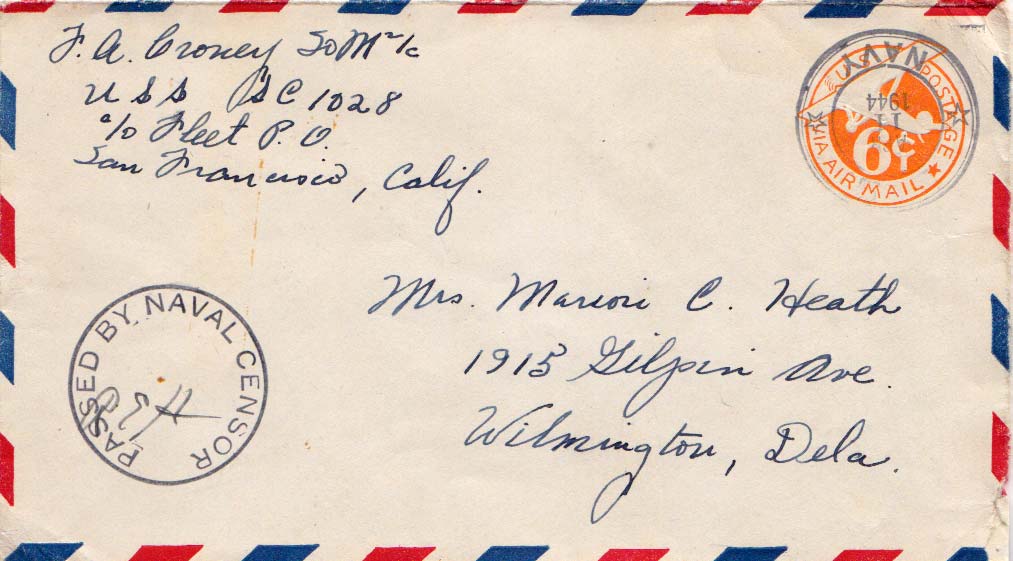 F. A. Croney SoM 2/c
USS SC 1028
c/o Fleet P. O.
San Francisco, Calif.
NAVY
11
1944
U.S. POSTAGE
6¢
VIA AIR MAIL
Mrs. Marion C. Heath
1915 Gilpin Ave.
Wilmington, Dela.
PASSED BY NAVAL CENSOR